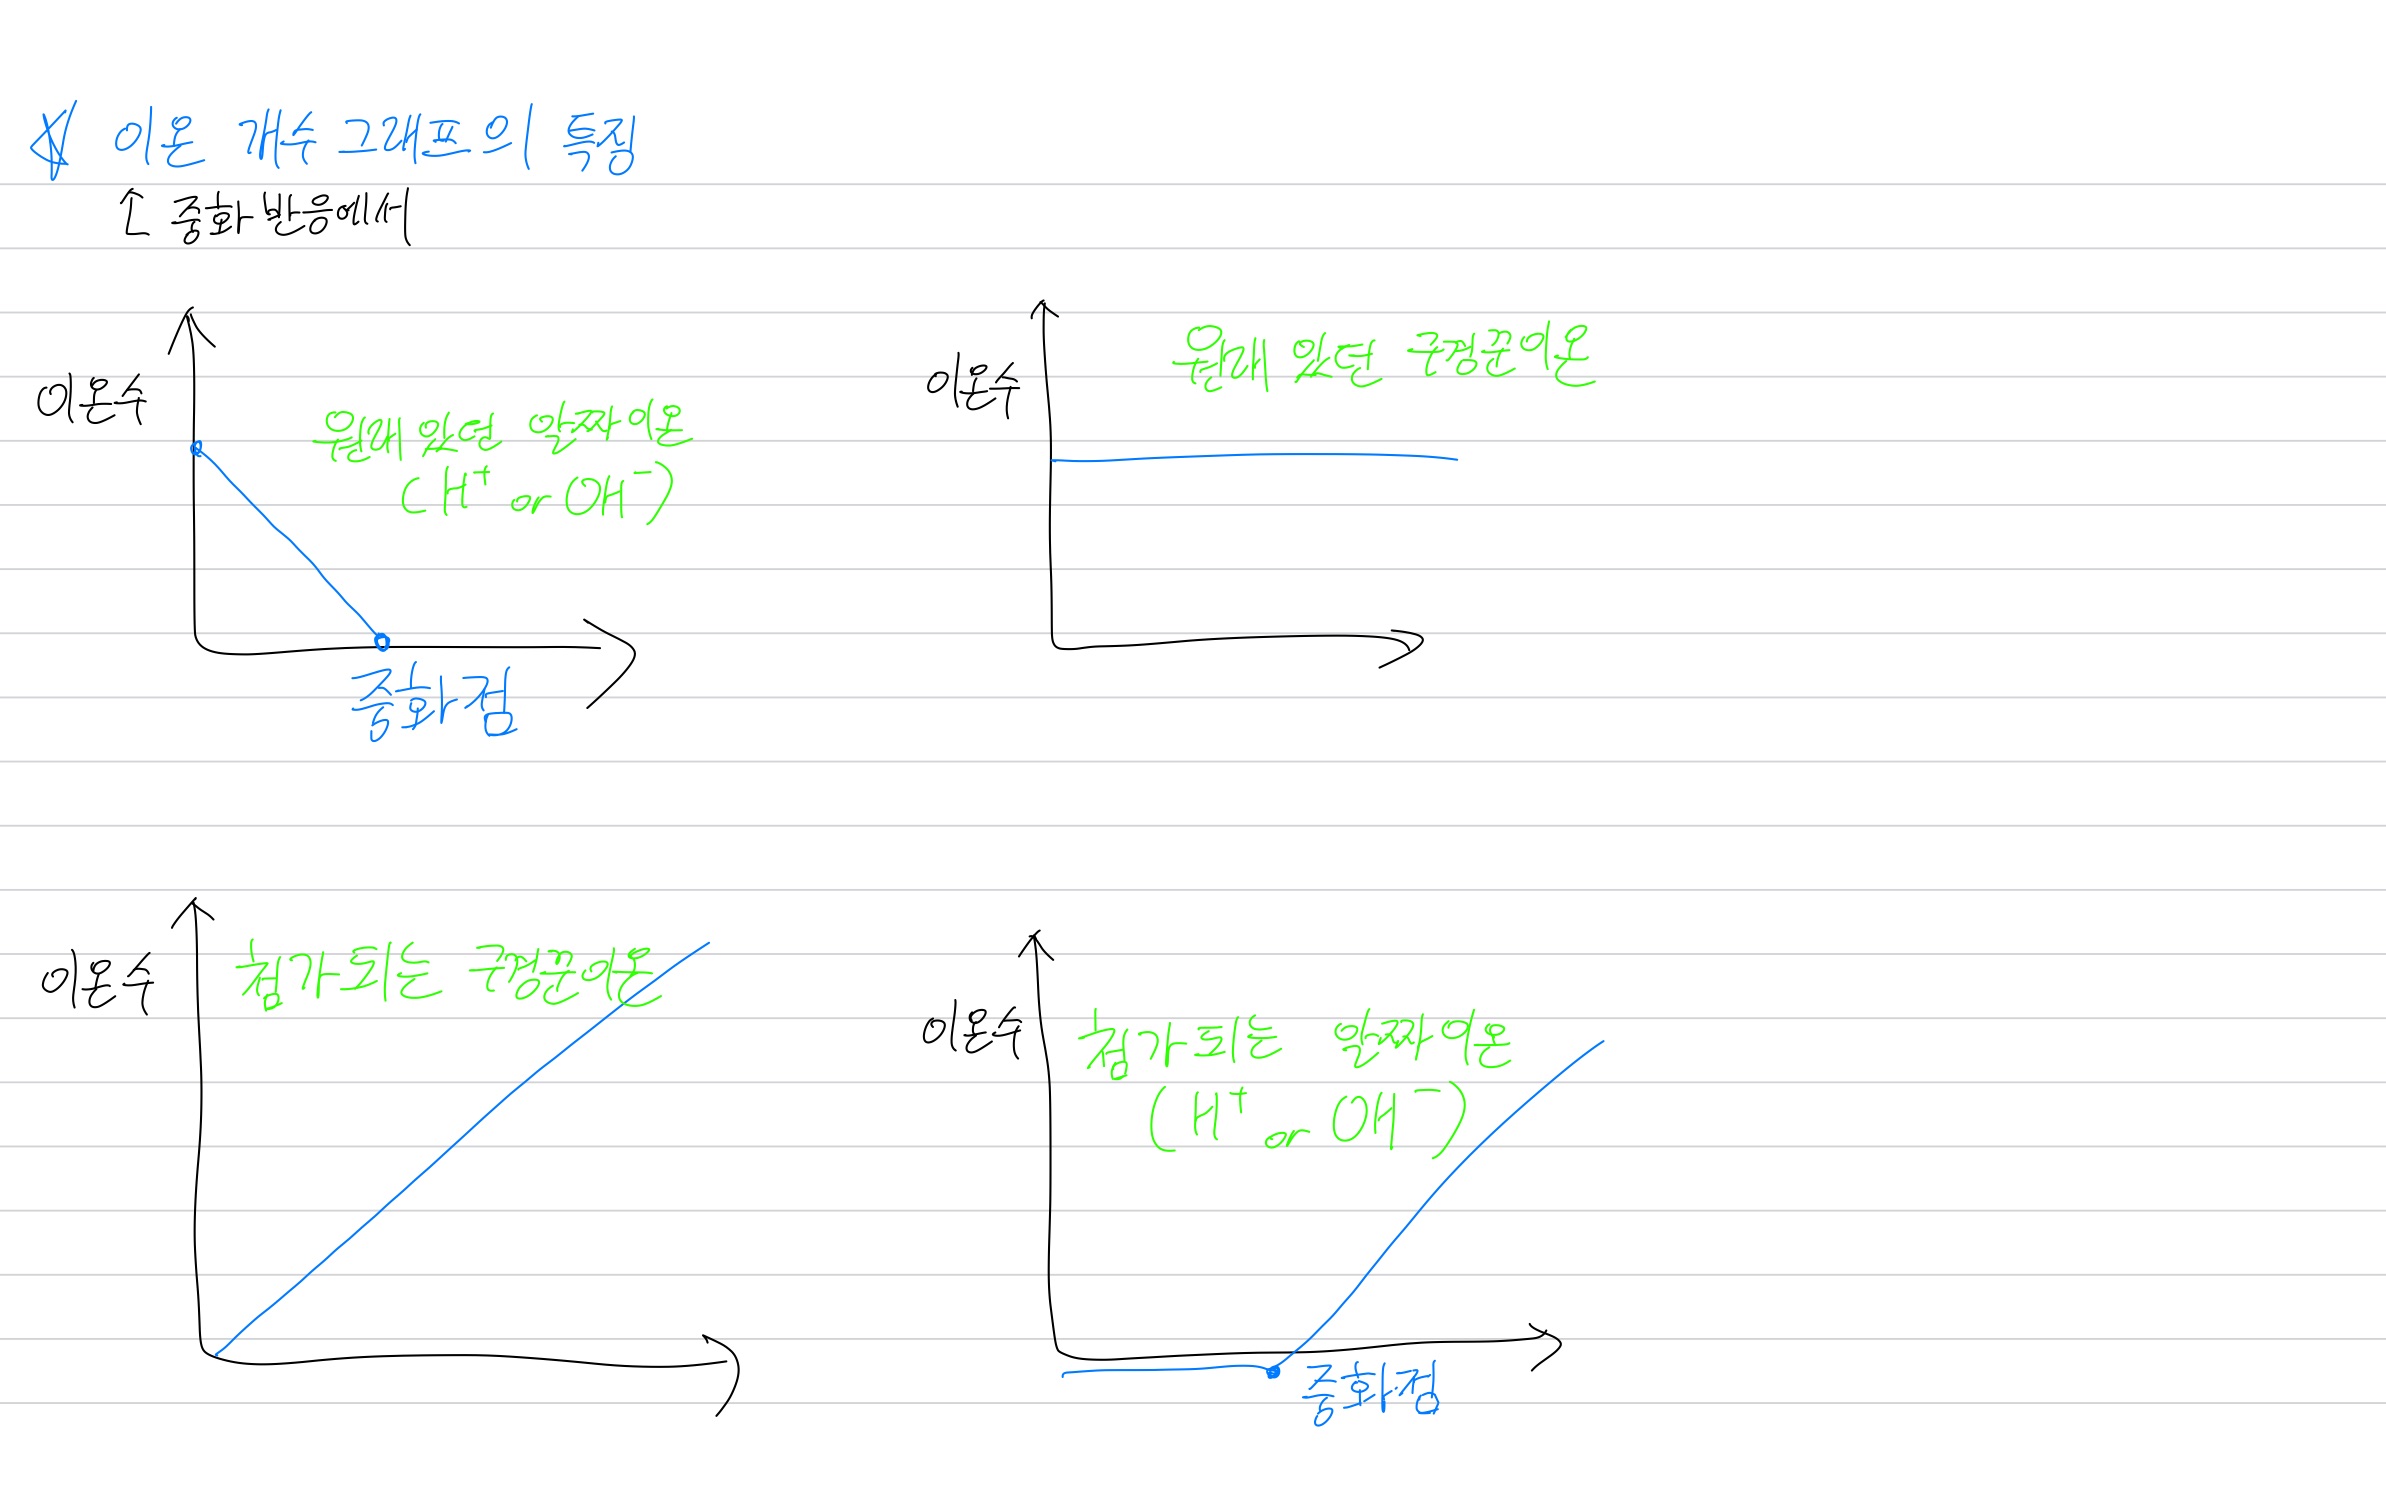 이온 개수 그래프의 특징
중화 반응에서
이온수
원래 있던 알짜이온
(H⁺ or OH⁻)
중화점
이온수
원래 있던 구경꾼이온
이온수
첨가되는 구경꾼이온
이온수
첨가되는 알짜이온
(H⁺ or OH⁻)
중화점